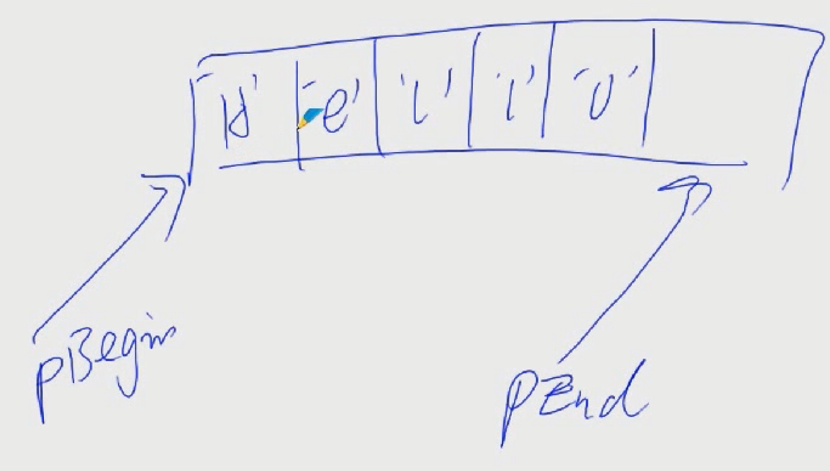 'H' 'e' 'l' 'l' 'o'
pBegin
pEnd